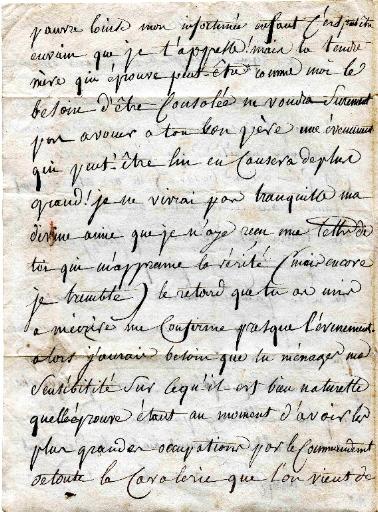 pauvre Louise mon infortunée enfant C'est peut être
envain que je t'appelle! mais ta tendre
mère qui éprouve peut-être comme moi le
besoin d'être Consolée ne voudra Surement
pas avouer a ton bon père une évènement
qui peut-être lui en Causera de plus
grand! je ne vivrai pas tranquille ma
divine amie que je n'aye reçu une Lettre de
toi qui m'apprenne la vérité (mais encore
je tremble) le retard que tu as mis
a m'écrire me Confirme presque l'évènement
alors j'aurais besoin que tu ménages ma
Sensibilité Sur Ce qu'il est bien naturelle
quelle éprouve étant au moment d'avoir les
plus grandes occupations par le Commandement
de toute la Cavalerie que l'on vient de